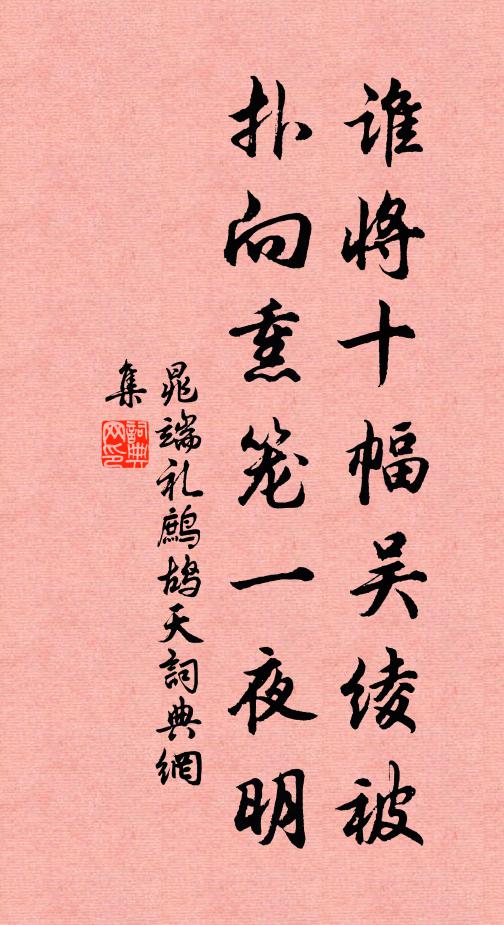 谁将十幅吴绫被
扑向熏笼一夜明
晁端礼鹧鸪天詞典網
集
詞典网印